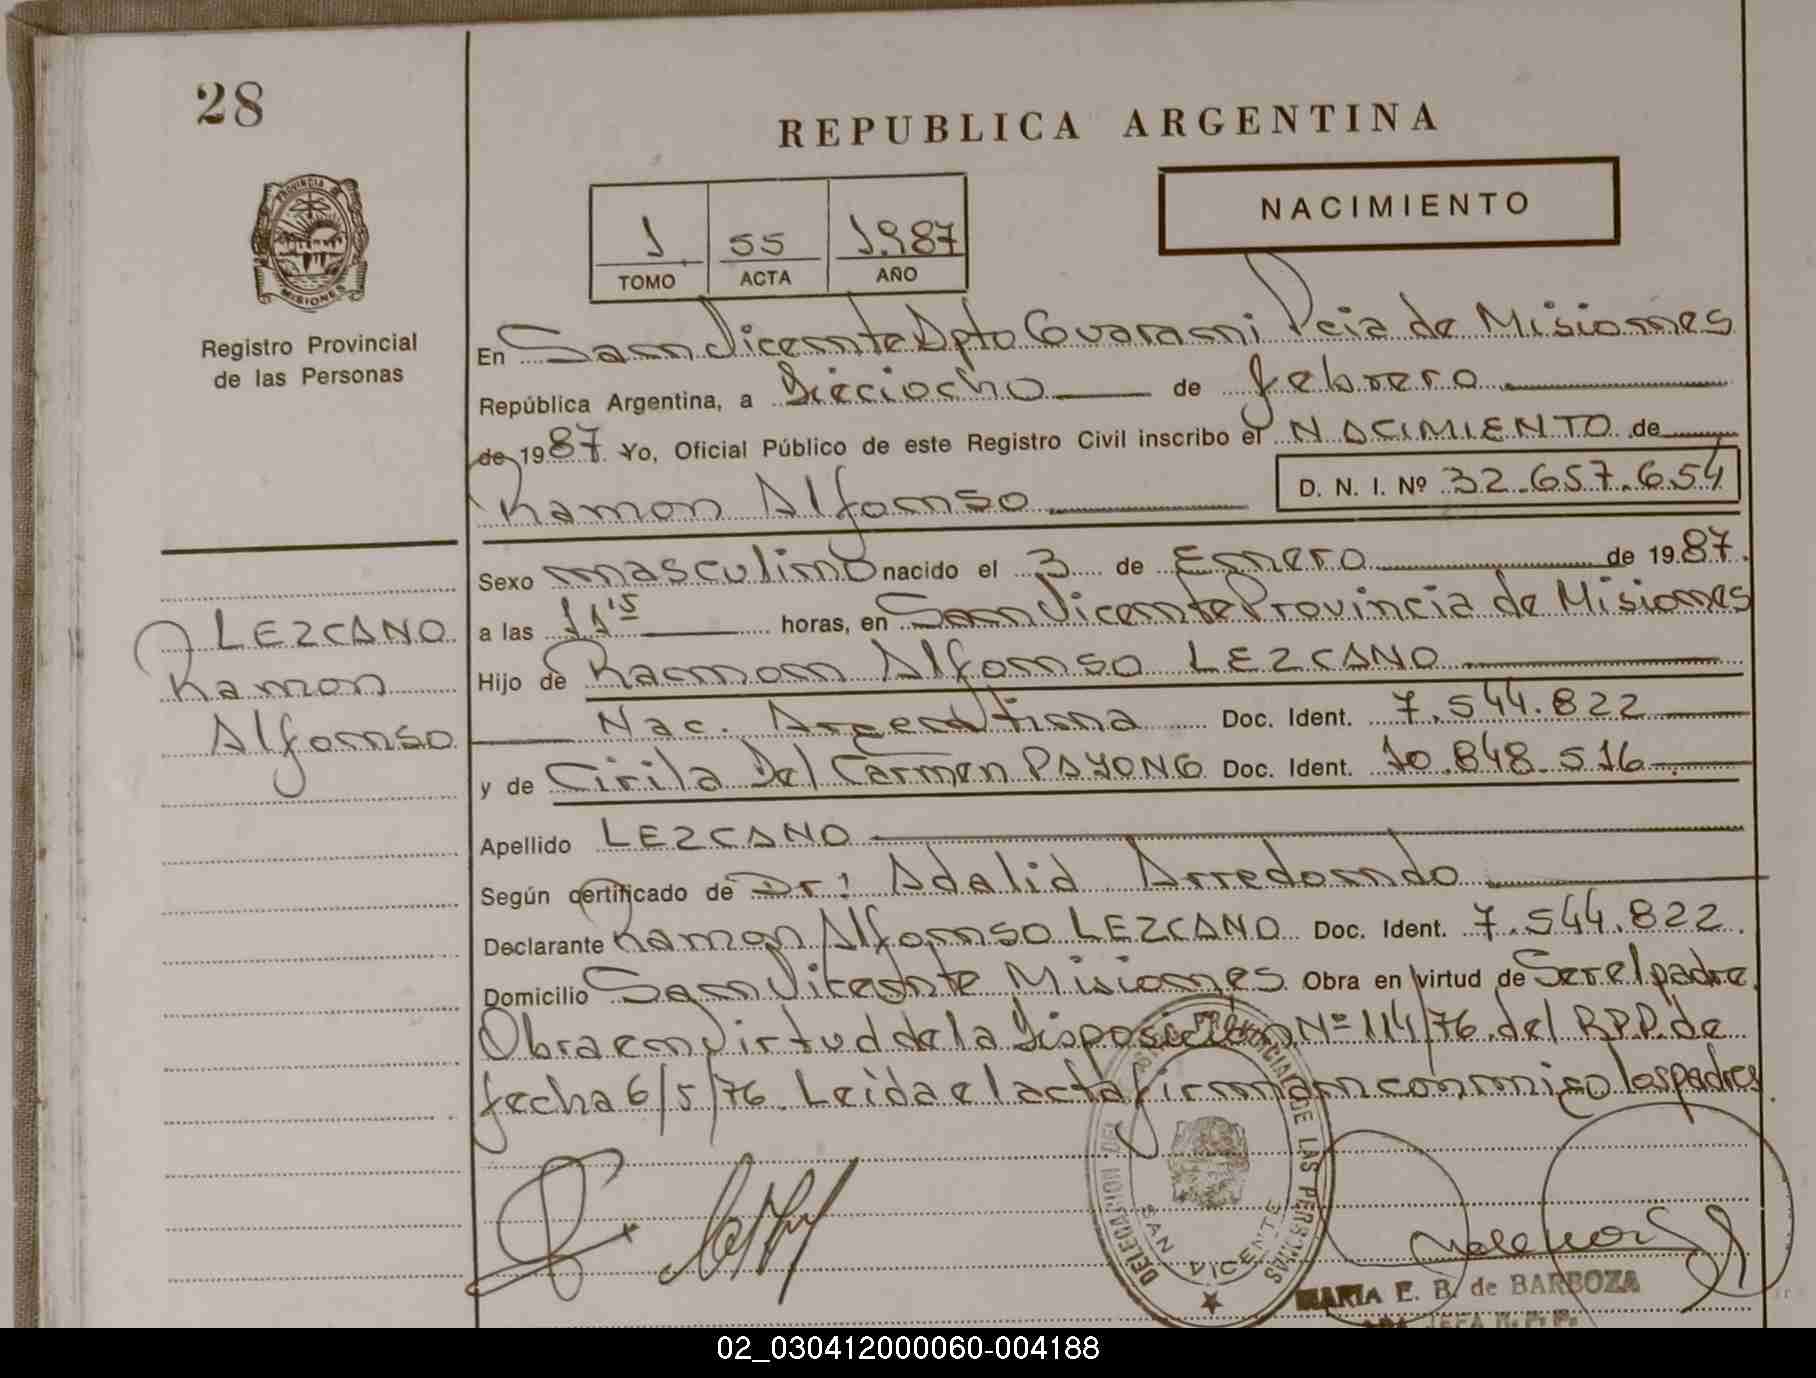 28
REPUBLICA ARGENTINA
NACIMIENTO
1 55 1987
TOMO ACTA AÑO
PROVINCIA DE MISIONES
Registro Provincial
de las Personas
En San Vicente Dpto Guarani Pcia de Misiones
República Argentina, a Dieciocho de febrero
de 1987 Yo, Oficial Público de este Registro Civil inscribo el NACIMIENTO de
Ramon Alfonso D. N. I. Nº 32.657.654
Sexo masculino nacido el 3 de Enero de 1987.
a las 11 15 horas, en San Vicente Provincia de Misiones
LEZCANO
Ramon
Alfonso
Hijo de Ramon Alfonso LEZCANO
Nac. Argentina Doc. Ident. 7.544.822
y de Cirila Del Carmen PAYONG Doc. Ident. 10.848.516
Apellido LEZCANO
Según certificado de Dr: Adalid Arredondo
Declarante Ramon Alfonso LEZCANO Doc. Ident. 7.544.822.
Domicilio San Vicente Misiones Obra en virtud de Ser el padre.
Obra en Virtud de la Disposicion Nº 114/76 del R.P.P. de
fecha 6/5/76. Leida el acta firman conmigo los padres.
DELEGACION DEL REGISTRO PROVINCIAL DE LAS PERSONAS
SAN VICENTE
MARIA E. B. de BARBOZA
JEFA R. P. P.
02_030412000060-004188